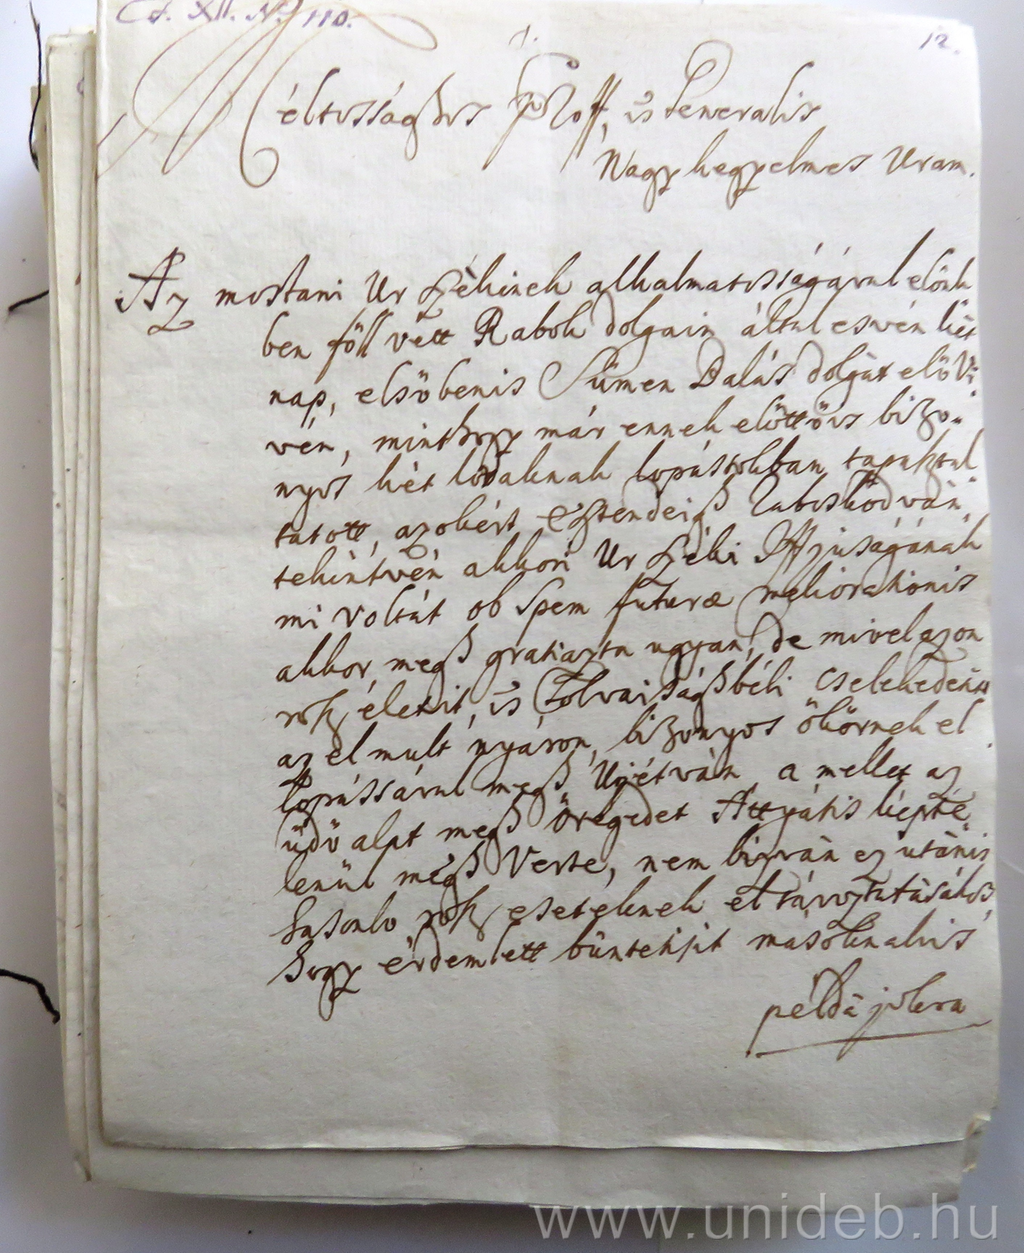 A. XII. No 110.
12.
Méltosághos Groff, és Generalis
Nagy kegyelmes Uram.
Az mostani Ur Székinek alkalmatosságárul elönk
ben föll vett Rabok dolgain által esvén két
nap, elsöbenis Sümen Balás dolgát elö vi
vén, minthogy már ennek elöttöis bizo-
nyos két lovaknak lopástokban tapasztal
tatott, azokért esztendeigh raboskodván,
tekintvén akkori Ur Széki Iffjuságának
mi voltát ob spem futuræ meliorationis
akkor megh gratiazta ugyan, de mivel azon
rosz életit, és tolvaisághbéli cselekedetit
az el mult nyáron, bizonyos ökörnek el
lopássával megh Ujétván, a mellet az
üdö alat megh öregedet Attyátis képte
lenül megh Verte, nem bizván ez utánis
hasonlo rosz eseteknek el távoztatásához,
hogy érdemlett büntetisit másoknakis
példa jokra
www.unideb.hu